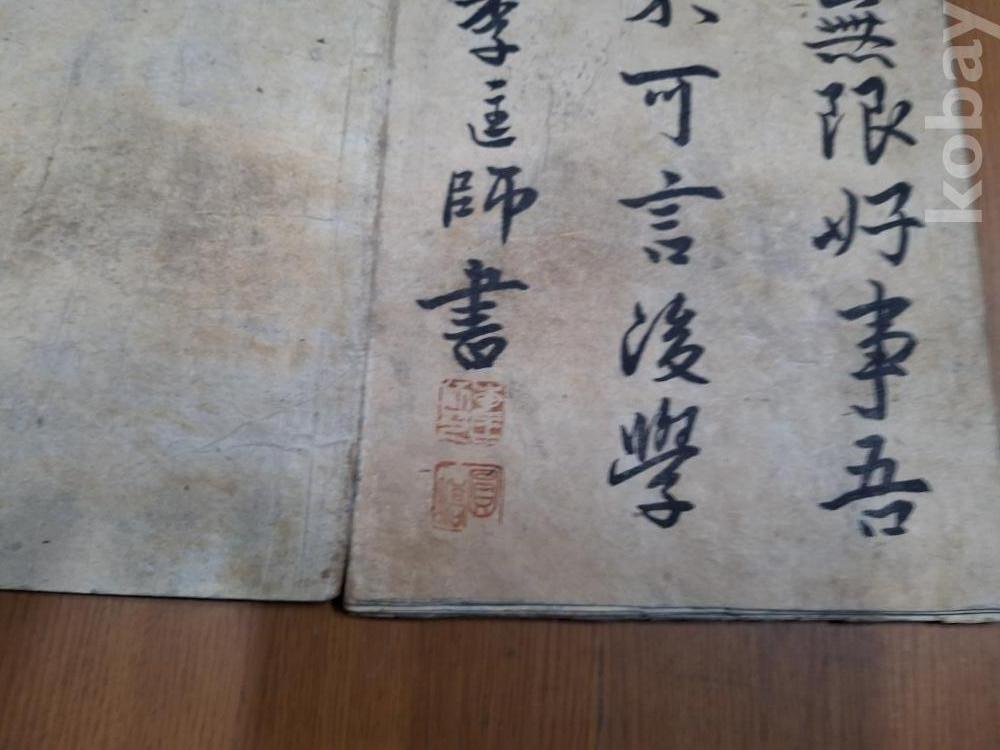 無限好事吾
不可言後學
李匡師書
kobay